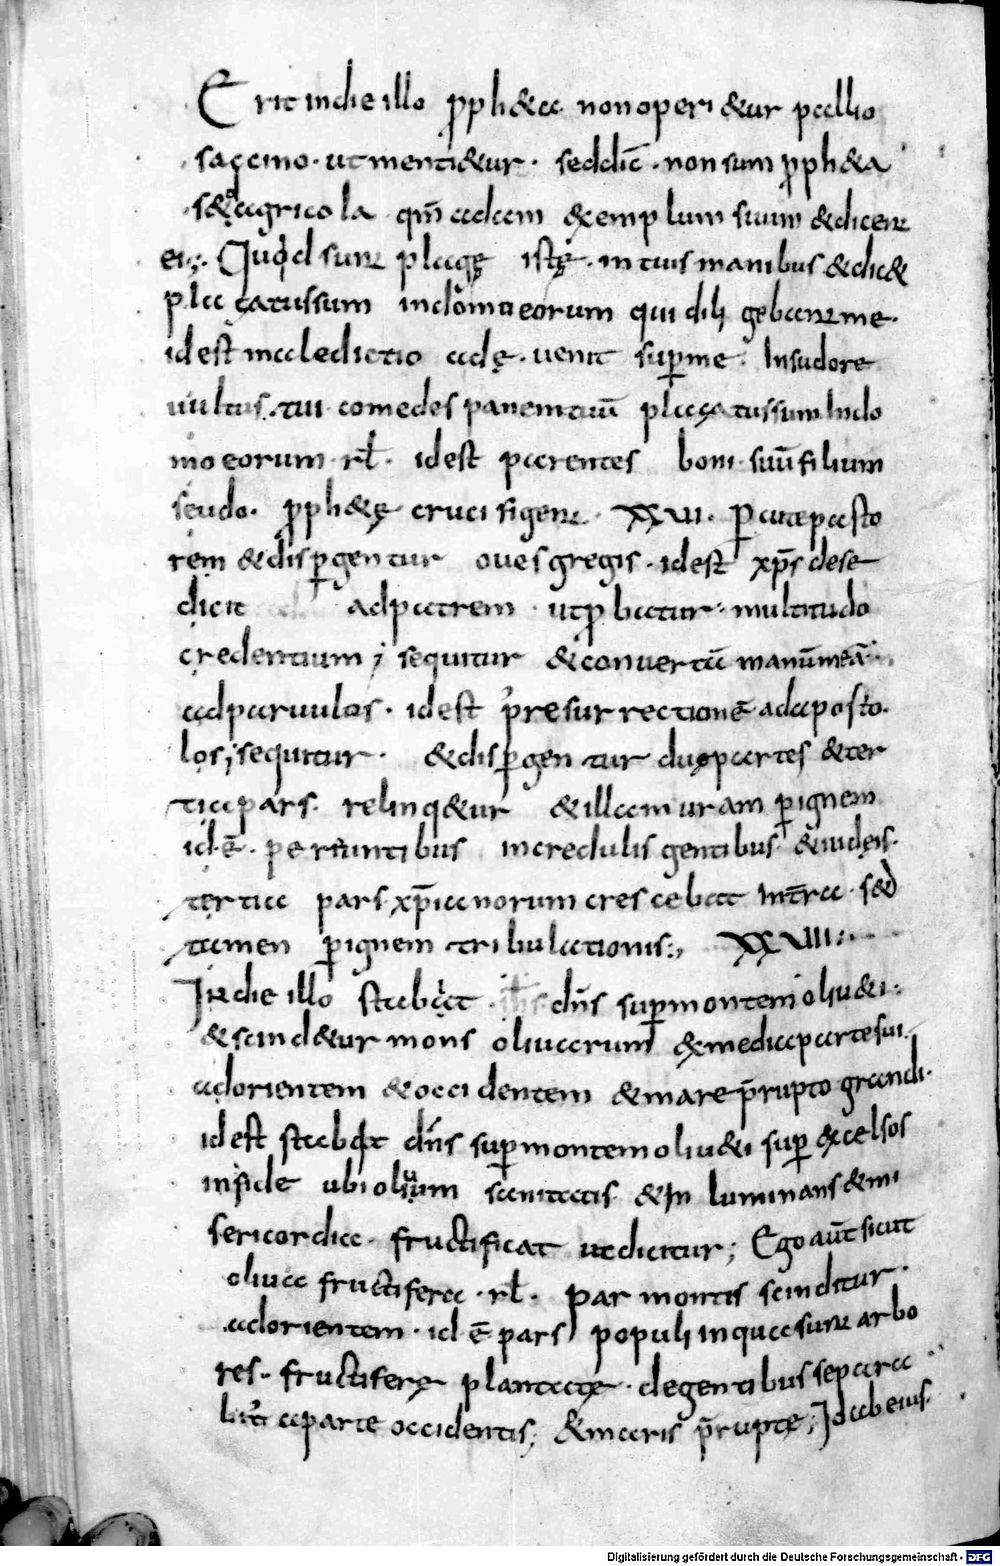 Erit in die illo p̄ph&a non operi&ur pallio
saccino· ut menti&ur· sed dic̄· non sum p̄ph&a
s& agricola qm̄ adam exemplum suum & dicent
ei;· Quid sunt plagę istę· in tuis manibus & dic&
plagatus sum in domo eorum qui diligebant me·
id est maledictio adę· venit sup̄ me· In sudore
uultus· tui comedes panem tuū plagatus sum In do
mo eorum· rł· id est parentes boni· suū filium
seudo· p̄ph&ę crucifigent· XXVII· Percute pasto
rem & disp̄gentur oues gregis· id est xp̄s dese
dicit ad patrem ut p̄batur· multitudo
credentium; sequitur & convertā manū meā·
ad paruulos· id est p̄ resurrectionē ad aposto·
los; sequitur· & disp̄gentur duo partes & ter
tia pars· relinq&ur & illam uram p̄ ignem
id·ē· pereuntibus incredulis gentibus & iudeis·
tertia pars xp̄ianorum crescebat In t̄ra· sed
tamen p̄ ignem tribulationis:, XXVIII:·
In die illo stabat· ihs· dn̄s sup̄ montem oliu&i:
& scind&ur mons oliuarum & media parte sui·
ad orientem & occidentem & mare p̄rupto grandi·
id est stabat dn̄s sup̄ montem oliu&i sup̄ excelsos
in fide ubi olium sanitatis & In luminans & mi
sericordia· fructificat ut dicitur; Ego aūt sicut
oliua fructifera· rł· par montis scinditur·
ad orientem· id ē pars populi in qua sunt arbo
res· fructiferę plantatę· de gentibus separa
bit̄ a parte occidentis; & maris p̄ruptę; Id ab eius·
Digitalisierung gefördert durch die Deutsche Forschungsgemeinschaft - DFG